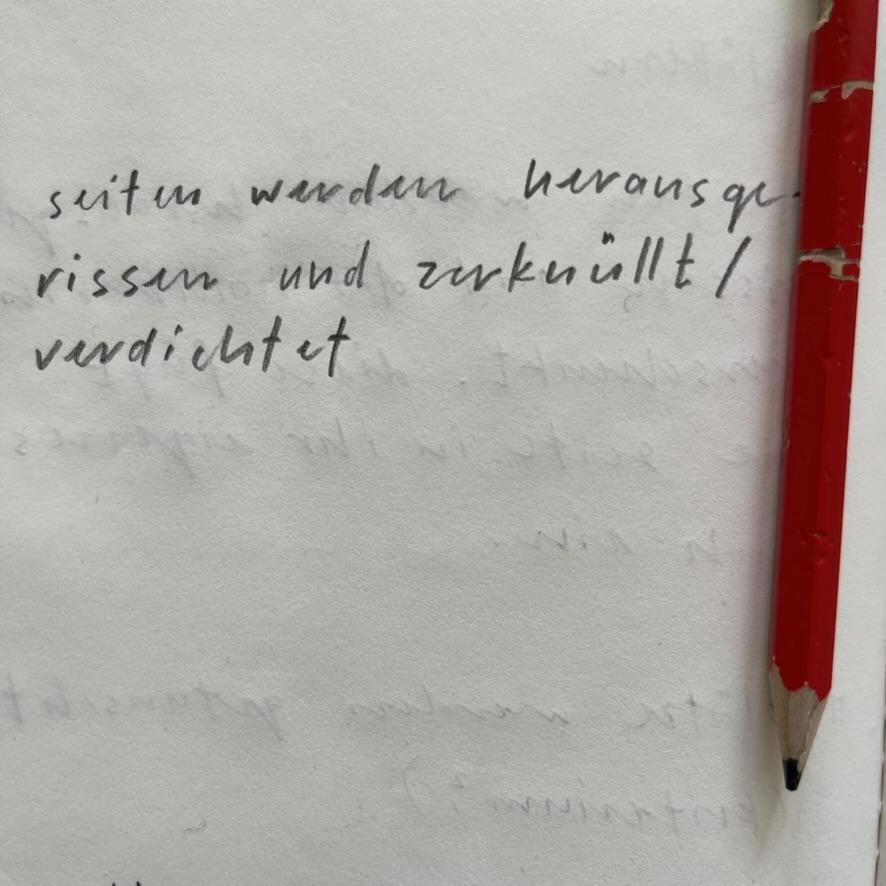 seiten werden herausge-
rissen und zerknüllt /
verdichtet